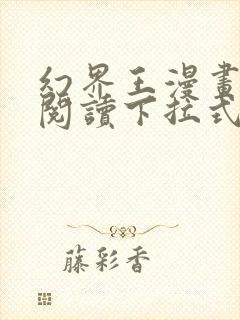 幻界王漫畫
閱讀下拉式
藤彩香